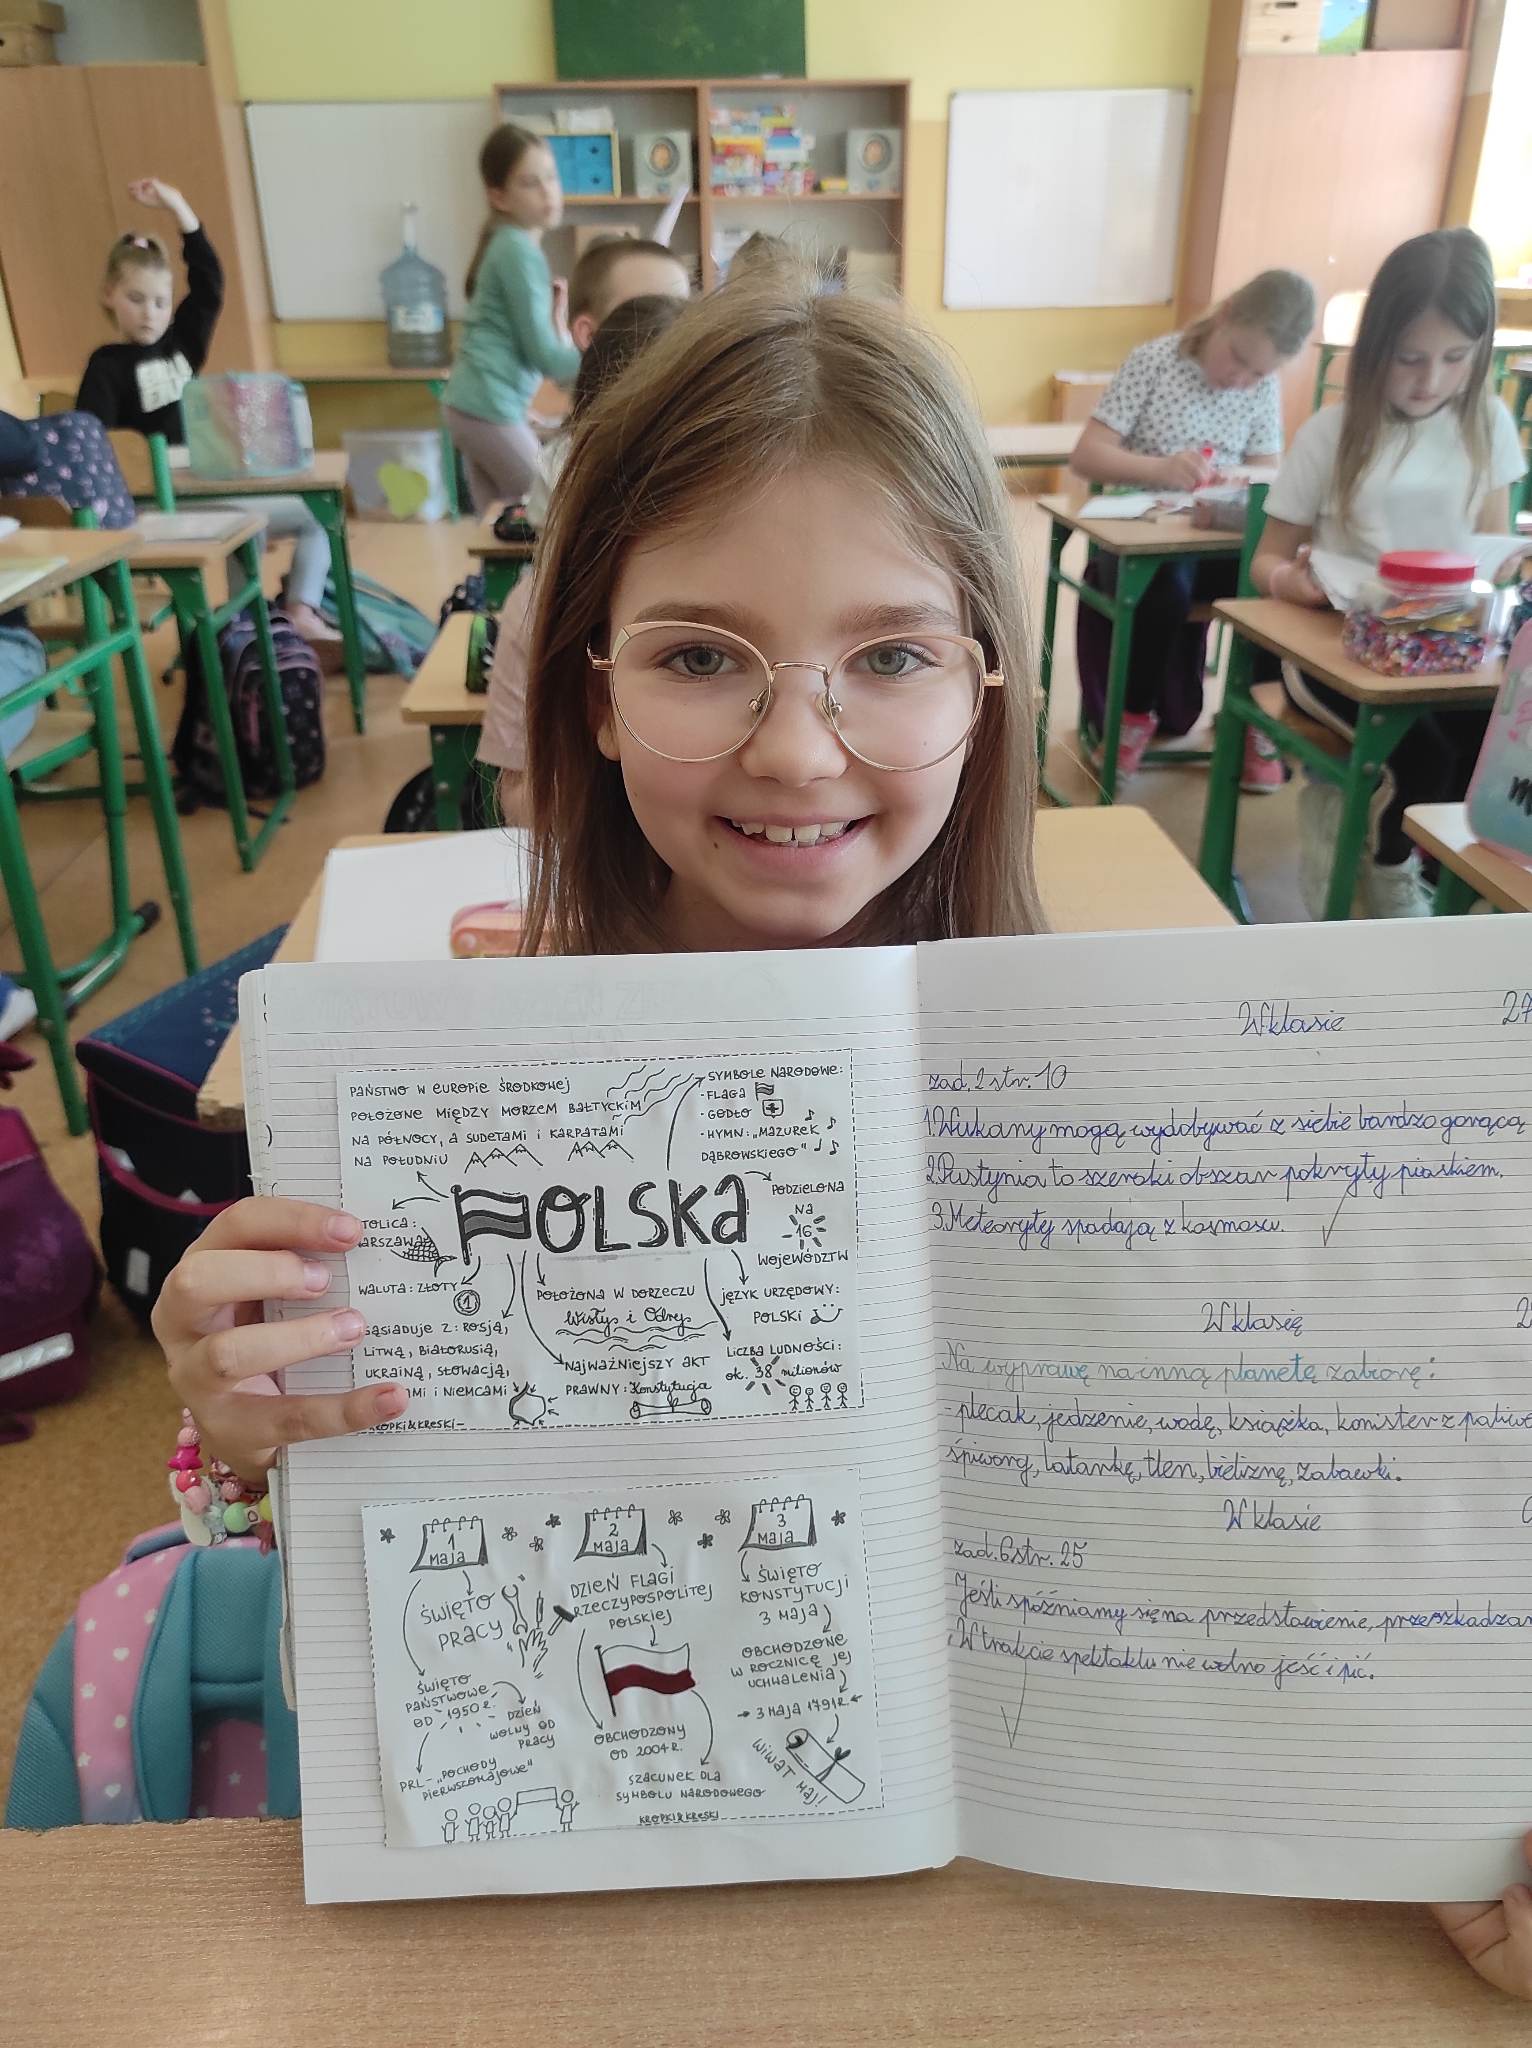 PAŃSTWO W EUROPIE ŚRODKOWEJ
POŁOŻONE MIĘDZY MORZEM BAŁTYCKIM
NA PÓŁNOCY, A SUDETAMI I KARPATAMI
NA POŁUDNIU
SYMBOLE NARODOWE:
- FLAGA
- GODŁO
- HYMN: „MAZUREK
DĄBROWSKIEGO"
POLSKA
PODZIELONA
NA
16
WOJEWÓDZTW
TOLICA:
ARSZAWA
WALUTA: ZŁOTY
1
SĄSIADUJE Z: ROSJĄ,
LITWĄ, BIAŁORUSIĄ,
UKRAINĄ, SŁOWACJĄ,
AMI I NIEMCAMI
KROPKI&KRESKI
POŁOŻONA W DORZECZU
Wisły i Odry
NAJWAŻNIEJSZY AKT
PRAWNY: Konstytucja
JĘZYK URZĘDOWY:
POLSKI
LICZBA LUDNOŚCI:
ok. 38 milionów
1
MAJA
ŚWIĘTO
PRACY
ŚWIĘTO
PAŃSTWOWE
OD 1950 R.
DZIEŃ
WOLNY OD
PRACY
PRL - „POCHODY
PIERWSZOMAJOWE"
2
MAJA
DZIEŃ FLAGI
RZECZYPOSPOLITEJ
POLSKIEJ
OBCHODZONY
OD 2004 R.
SZACUNEK DLA
SYMBOLU NARODOWEGO
KROPKI&KRESKI
3
MAJA
ŚWIĘTO
KONSTYTUCJI
3 MAJA
OBCHODZONE
W ROCZNICĘ JEJ
UCHWALENIA
3 MAJA 1791 R.
WIWAT MAJ!
W klasie 27
zad. 2 str. 10
1. Wukany mogą wydobywać z siebie bardzo gorącą
2. Pustynia to szeroki obszar pokryty piaskiem.
3. Meteoryty spadają z kosmosu.
W klasię 2
Na wyprawę na inną planetę zabiorę:
- plecak, jedzenie, wodę, książka, konister z paliwe
śpiwory, latarkę, tlen, bieliznę, zabawki.
W klasie
zad. 6 str. 25
Jeśli spóźniamy się na przedstawienie, przeszkadzam
W trakcie spektaklu nie wolno jeść i pić.